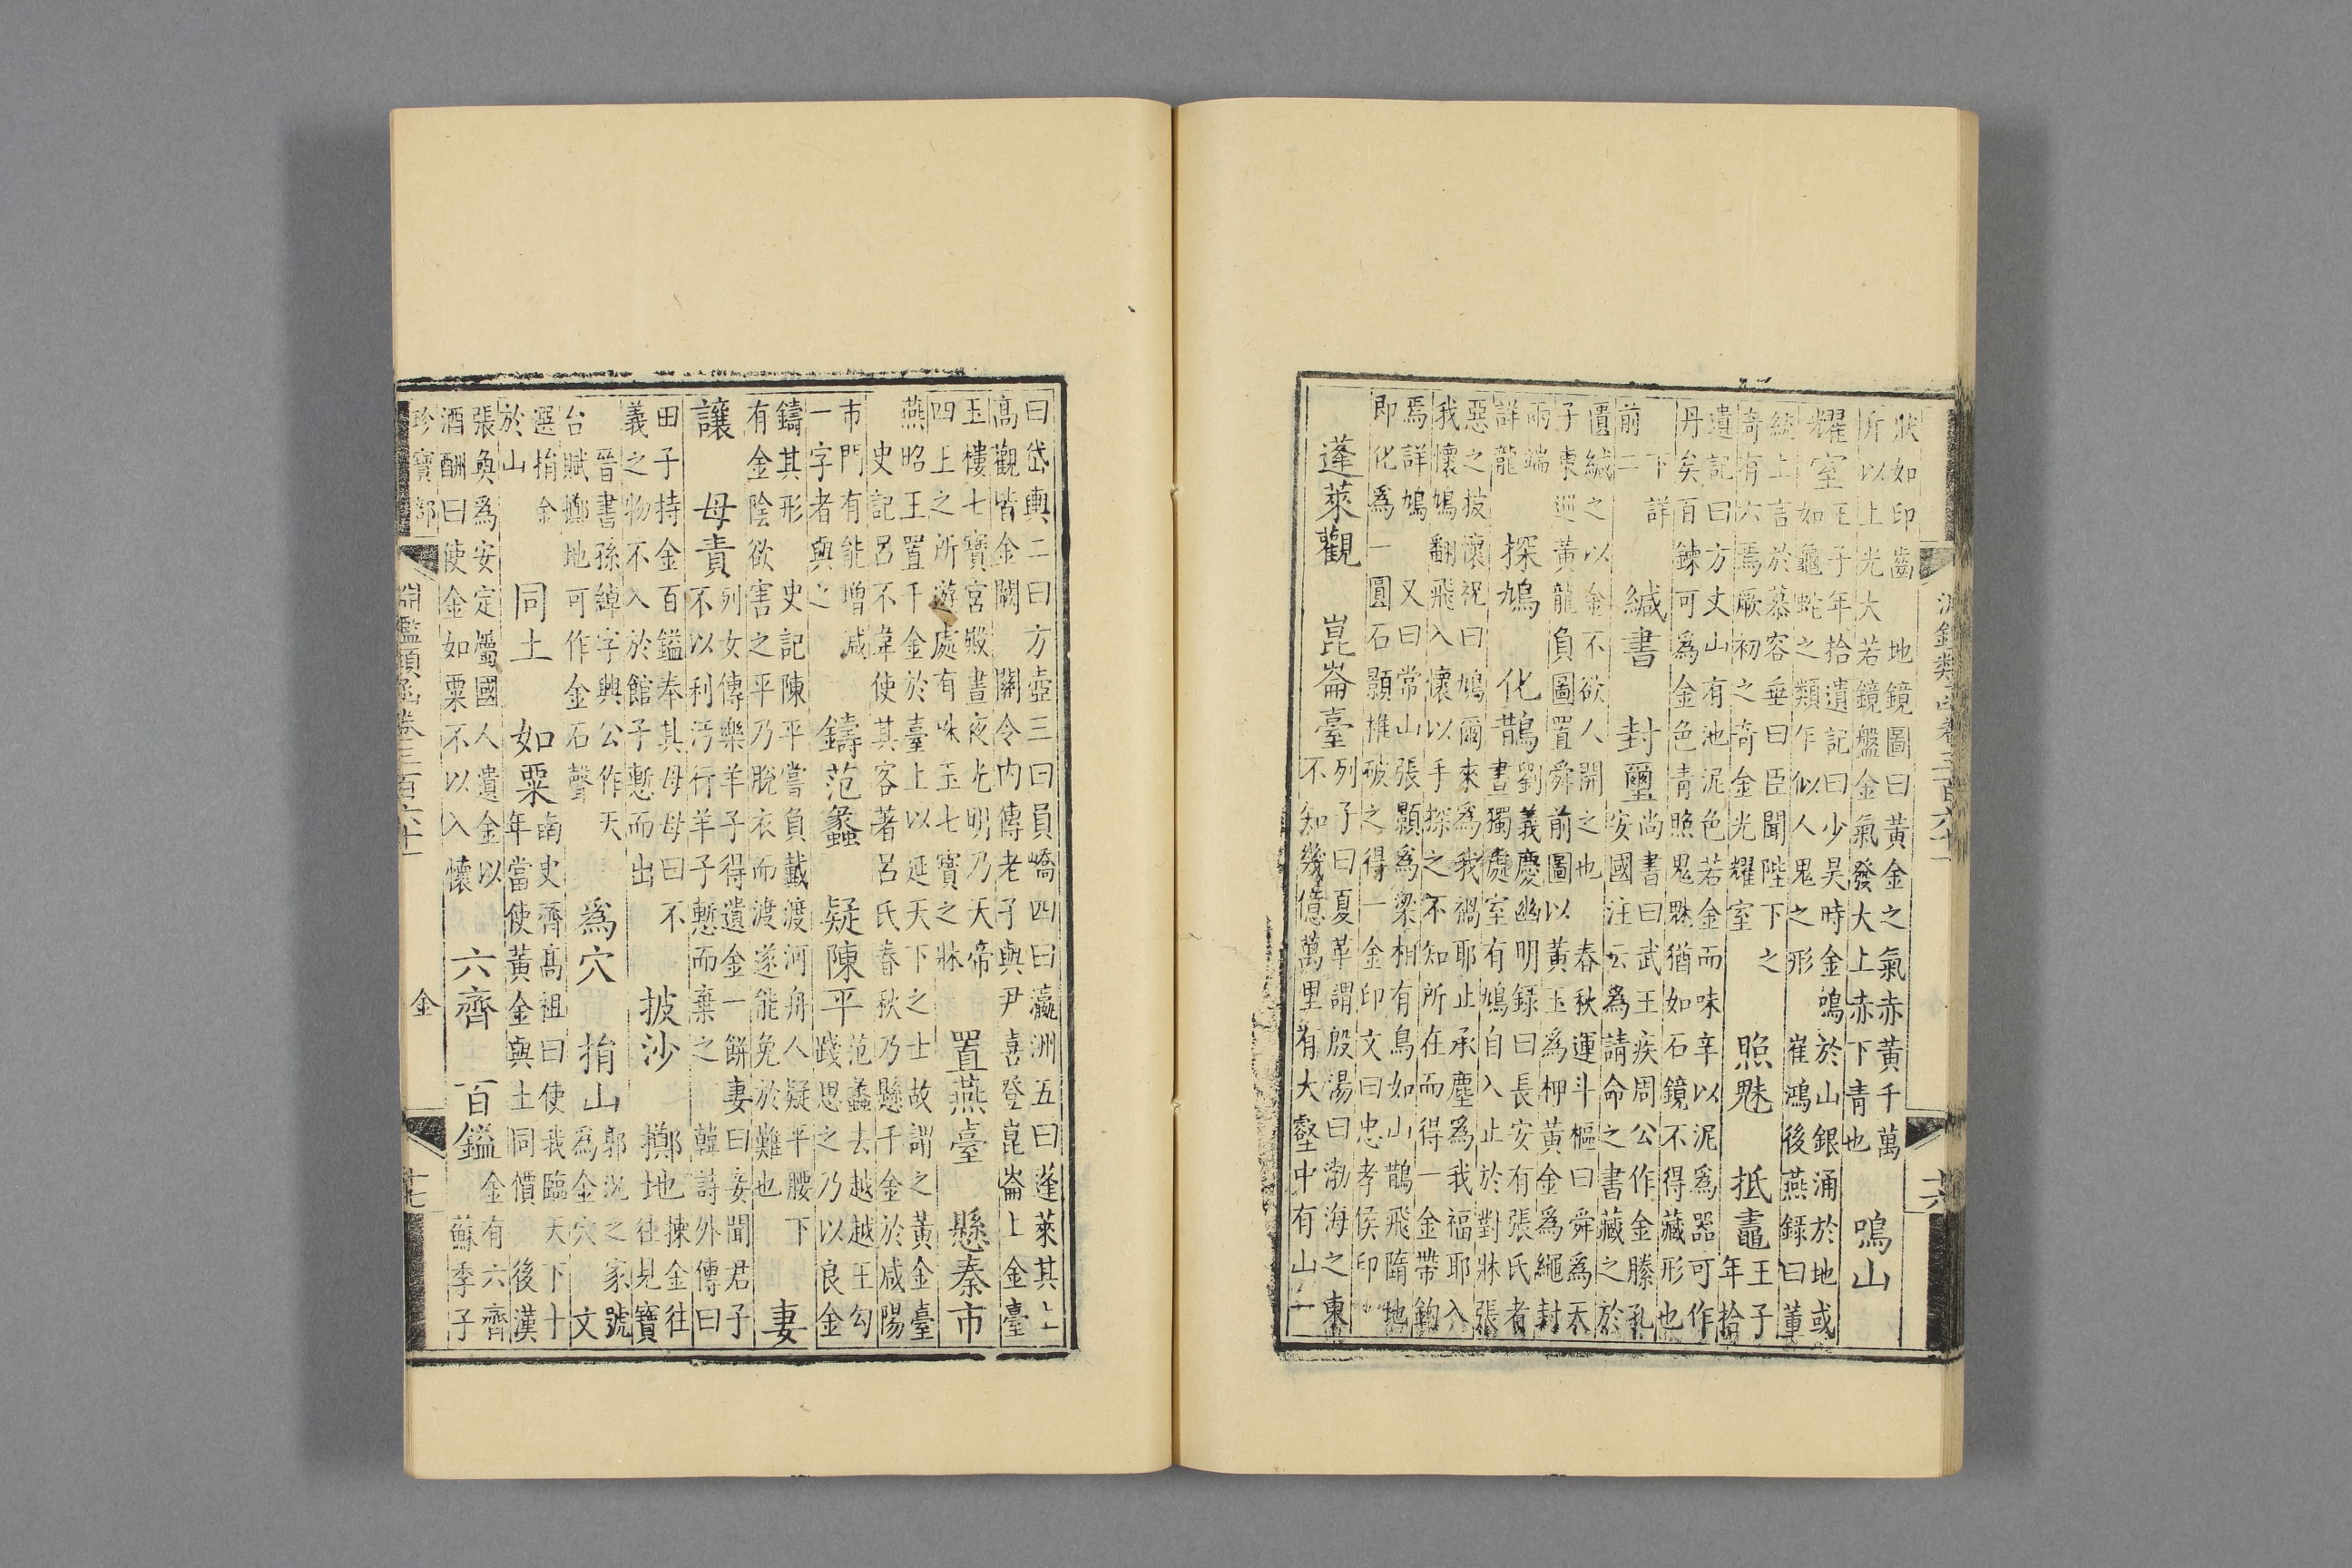 淵鑑類函卷三百六十一 十六
狀如印齒 地鏡圖曰黃金之氣赤黃千萬
斤以上光大若鏡盤金氣發大上赤下青也
鳴山
耀室
王子年拾遺記曰少昊時金鳴於山銀涌於地或
如龜蛇之類乍似人鬼之形 崔鴻後燕錄曰董
統上言於慕容垂曰臣聞陛下之
奇有六焉厥初之奇金光耀室
照魅 抵鼃
王子
年拾
遺記曰方丈山有池泥色若金而味辛以泥爲器可作
丹矣百鍊可爲金色青照鬼魅猶如石鏡不得藏形也
下詳
前二
緘書 封璽
尚書曰武王疾周公作金縢孔
安國注云爲請命之書藏之於
匱緘之以金不欲人開之也 春秋運斗樞曰舜爲天
子東巡黃龍負圖置舜前圖以黃玉爲柙黃金爲繩封
兩端
詳龍
探鳩 化鵲
劉義慶幽明錄曰長安有張氏者
晝獨處室有鳩自入止於對牀張
惡之披懷祝曰鳩爾來爲我禍耶止承塵爲我福耶入
我懷鳩翻飛入懷以手探之不知所在而得一金帶鉤
焉詳鳩 又曰常山張顥爲梁相有鳥如山鵲飛墮地
即化爲一圓石顥推破之得一金印文曰忠孝侯印
蓬萊觀 崑崙臺
列子曰夏革謂殷湯曰渤海之東
不知幾億萬里有大壑中有山一
曰岱輿二曰方壺三曰員嶠四曰瀛洲五曰蓬萊其上
高觀皆金闕 關令內傳老子與尹喜登崑崙上金臺
玉樓七寶宮殿晝夜光明乃天帝
四上之所游處有味玉七寶之牀
置燕臺 懸秦市
燕昭王置千金於臺上以延天下之士故謂之黃金臺
史記呂不韋使其客著呂氏春秋乃懸千金於咸陽
市門有能增減
一字者與之
鑄范蠡 疑陳平
范蠡去越越王勾
踐思之乃以良金
鑄其形 史記陳平嘗負戴渡河舟人疑平腰下
有金陰欲害之平乃脫衣而渡遂能免於難也
妻
讓 母責
列女傳樂羊子得遺金一餅妻曰妾聞君子
不以利污行羊子慙而棄之 韓詩外傳曰
田子持金百鎰奉其母母曰不
義之物不入於館子慙而出
披沙 擲地
揀金往
往見寶
晉書孫綽字興公作天
台賦擲地可作金石聲
爲穴 捐山
郭況之家號
爲金穴 文
選捐金
於山
同土 如粟
南史齊高祖曰使我臨天下十
年當使黃金與土同價 後漢
張奐爲安定屬國人遺金以
酒酬曰使金如粟不以入懷
六齊 百鎰
金有六齊
蘇季子
珍寶部 淵鑑類函卷三百六十一 金 十七